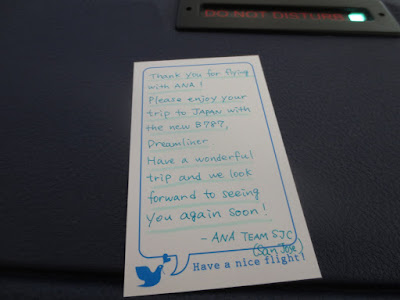 DO NOT DISTURB
Thank you for flying
with ANA!
Please enjoy your
trip to JAPAN with
the new B787,
Dreamliner
Have a wonderful
trip and we look
forward to seeing
you again soon!
- ANA TEAM SJC
(San Jose)
Have a nice flight!